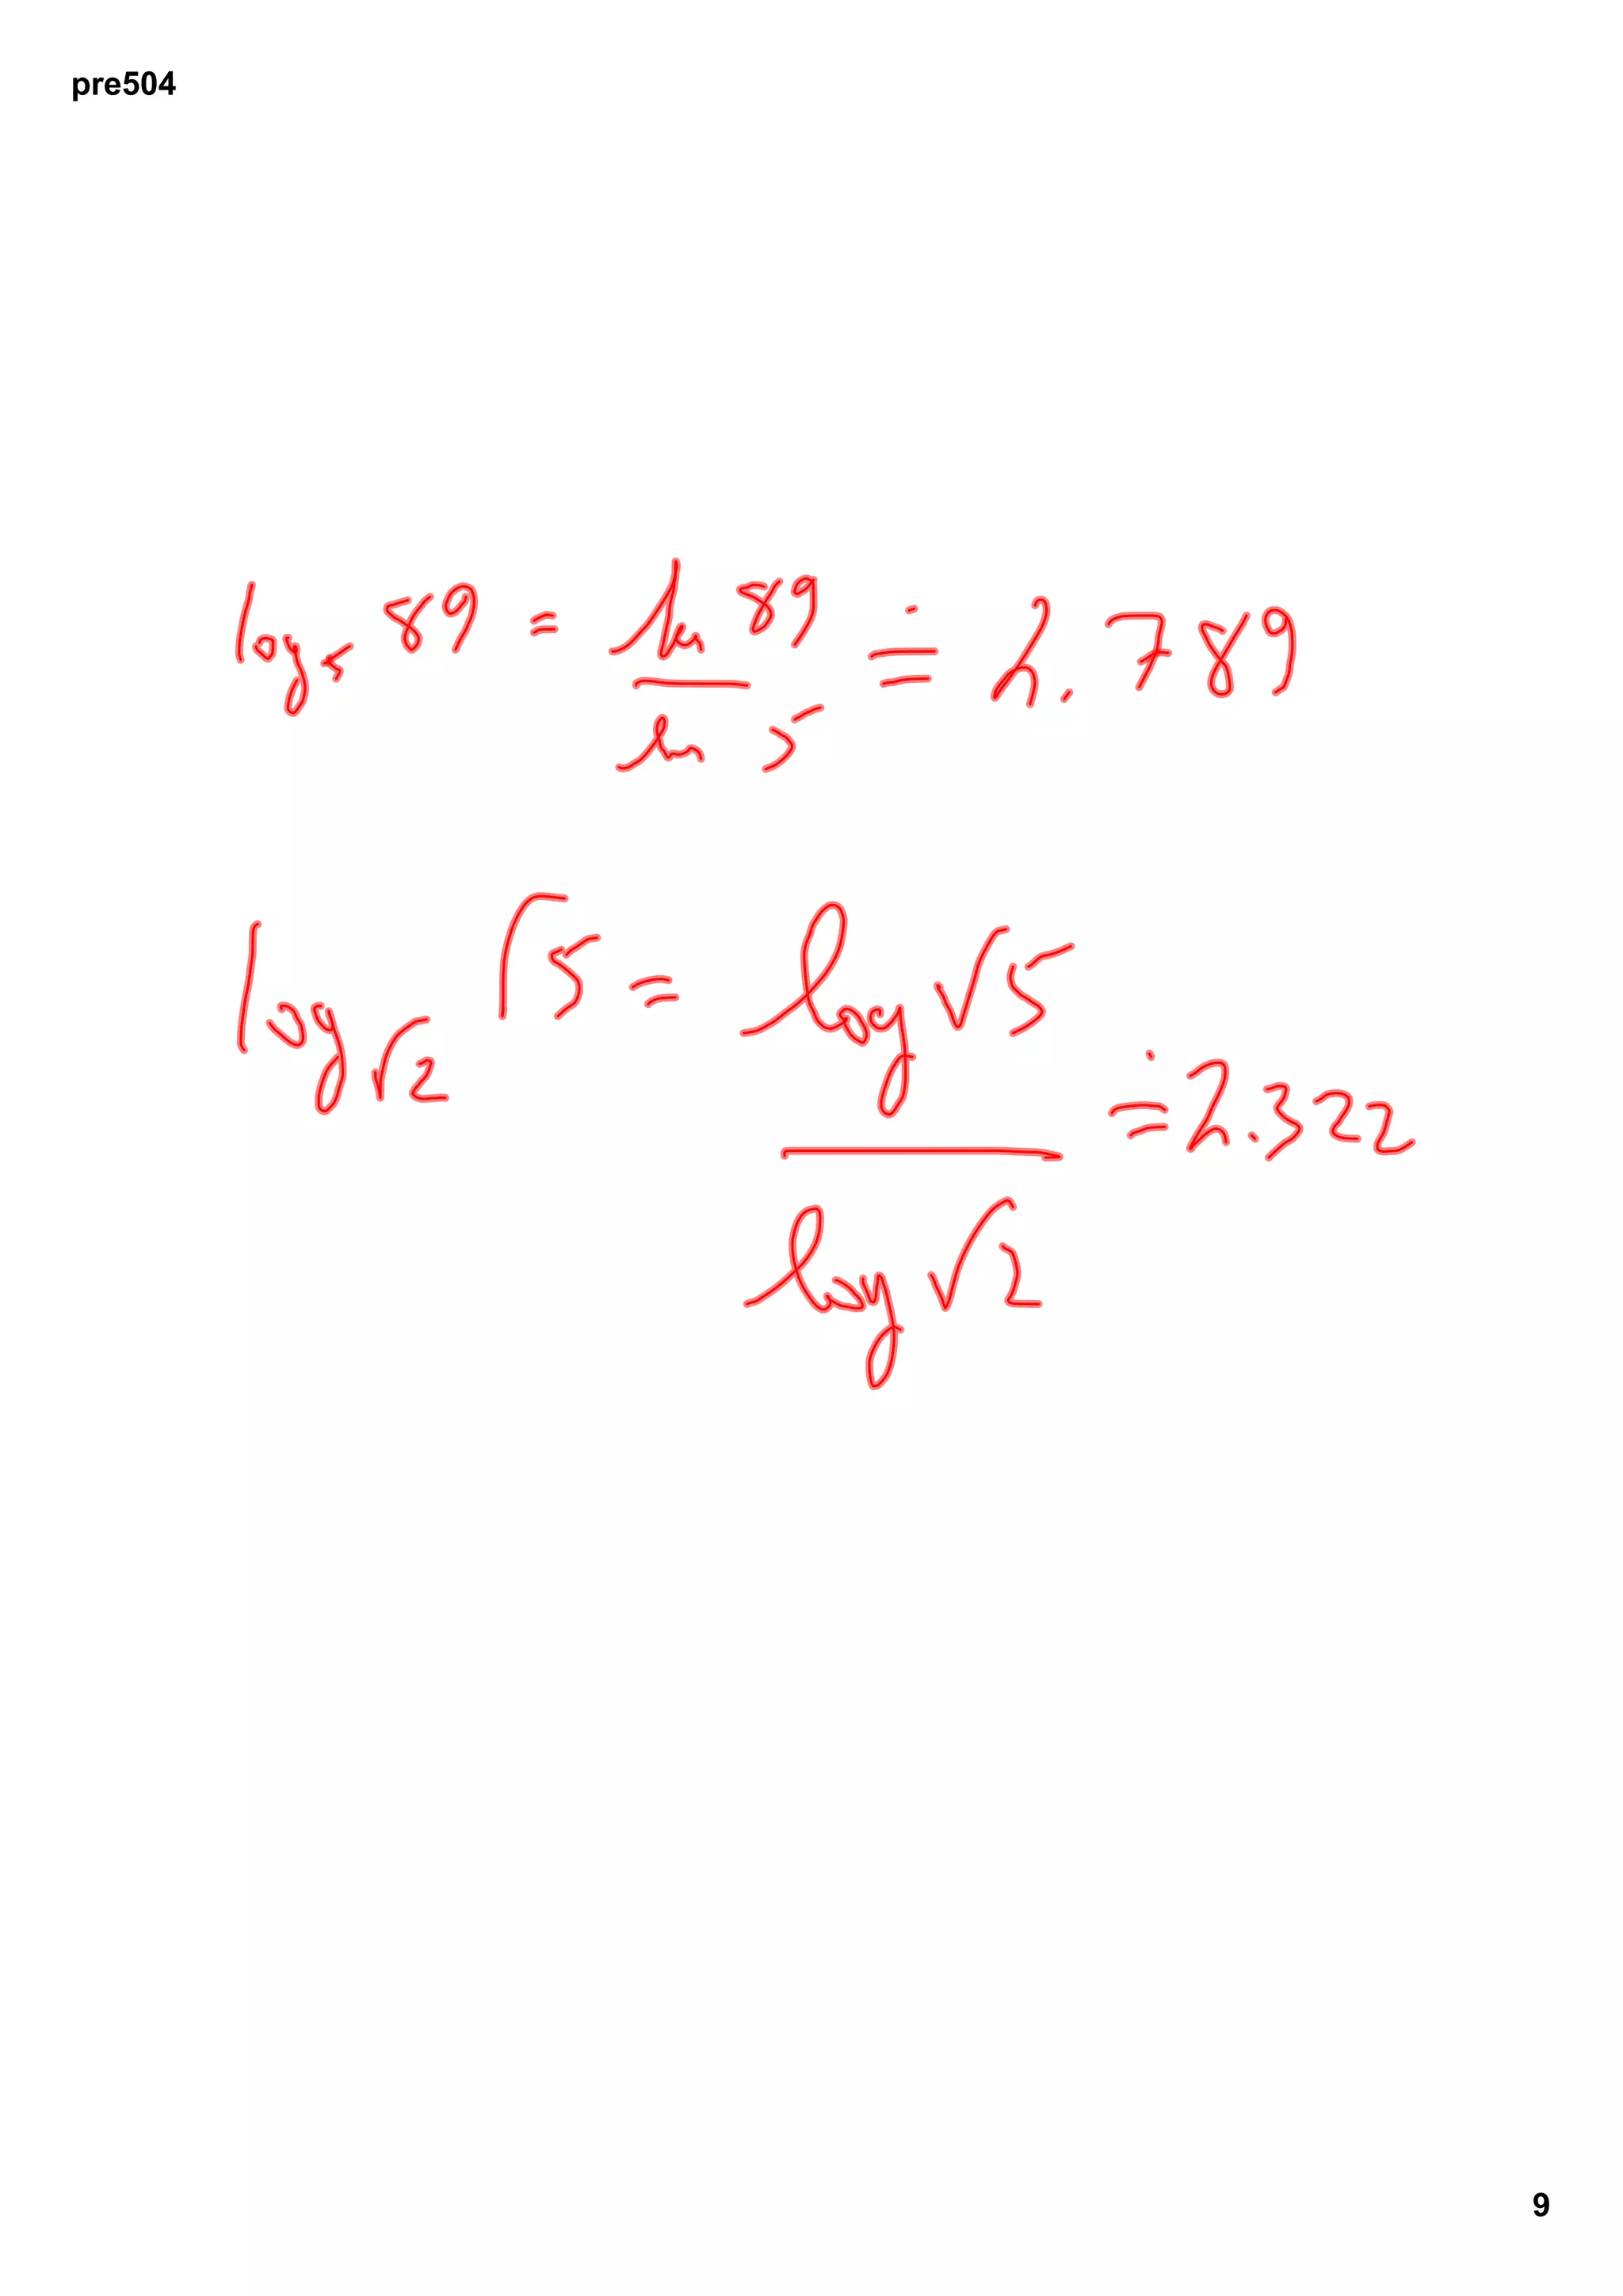 pre504
log₅ 89 = ln 89 / ln 5 ≐ 2.789
log_√2 √5 = log √5 / log √2 ≐ 2.322
9